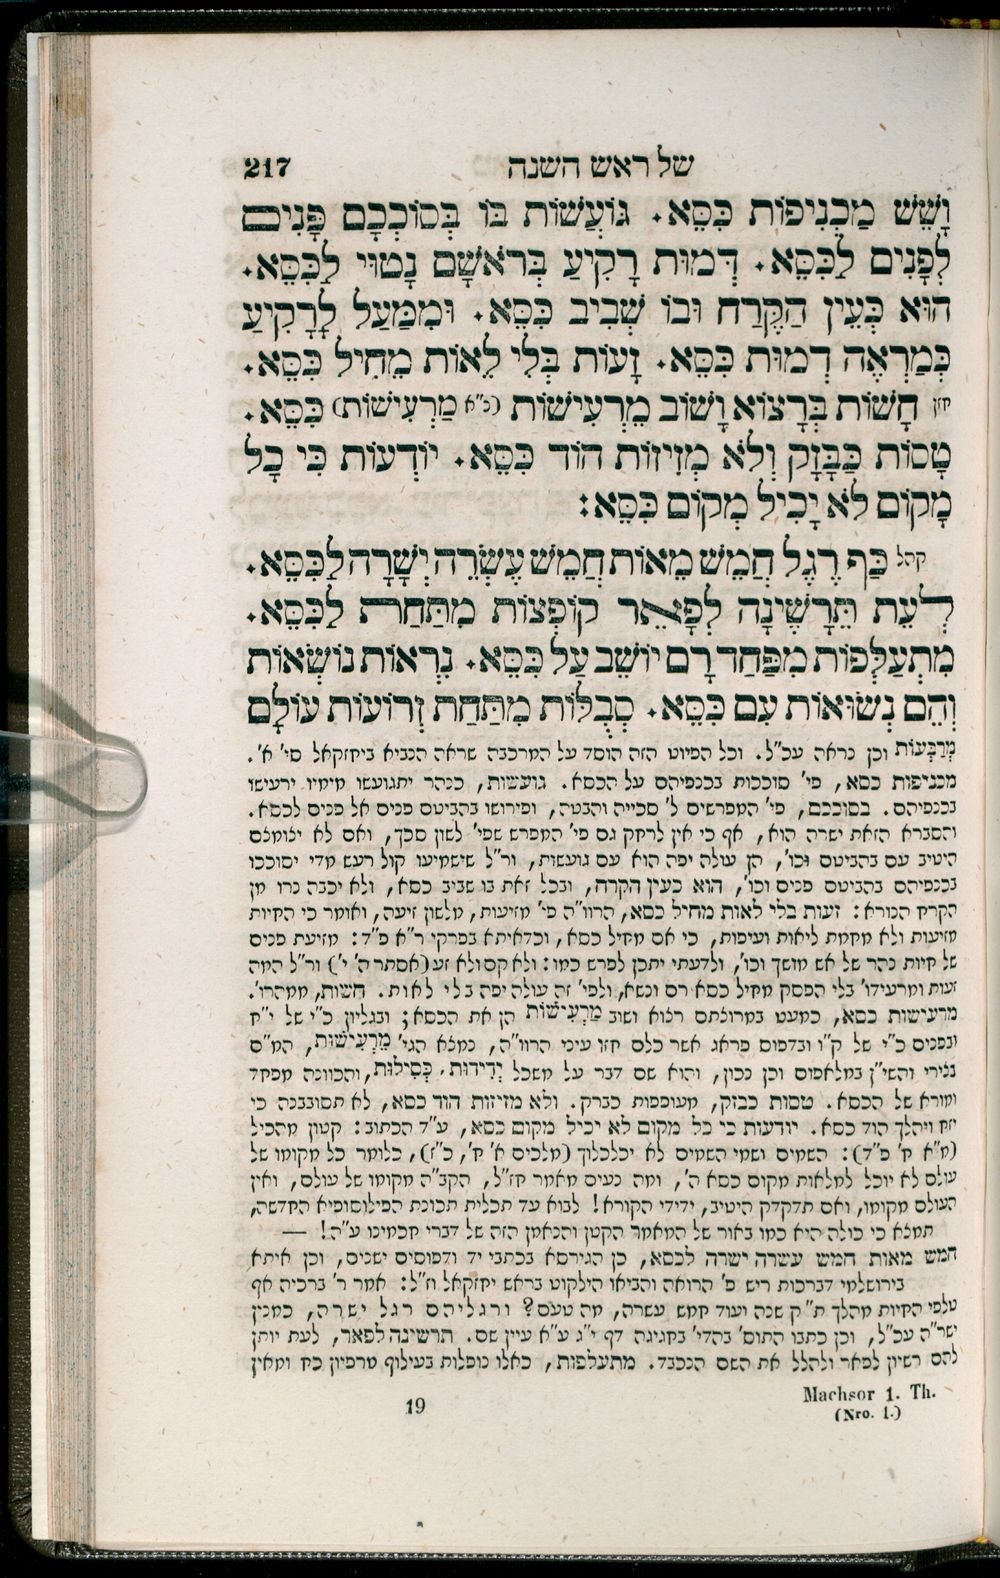 של ראש השנה 217
וָשֵׁשׁ מַכְנִיפוֹת כִּסֵּא. גּוֹעֲשׁוֹת בּוֹ בְּסוֹכְכָם פָּנִים
לְפָנִים לַכִּסֵּא. דְּמוּת רָקִיעַ בְּראֹשָׁם נָטוּי לַכִּסֵּא.
הוּא כְּעֵין הַקֶּרַח וּבוֹ שְׁבִיב כִּסֵּא. וּמִמַּעַל לָרָקִיעַ
כְּמַרְאֶה דְמוּת כִּסֵּא. זָעוֹת בְּלִי לֵאוֹת מֵחִיל כִּסֵּא.
חזן חָשׁוֹת בְּרָצוֹא וָשׁוֹב מֵרְעִישׁוֹת (נ״א מַרְעִישׁוֹת) כִּסֵּא.
טָסוֹת כַּבָּזָק וְלֹא מְזִיזוֹת הוֹד כִּסֵּא. יוֹדְעוֹת כִּי כָל
מָקוֹם לֹא יָכִיל מְקוֹם כִּסֵּא:
קהל כַּף רֶגֶל חֲמֵשׁ מֵאוֹת חֲמֵשׁ עֶשְׂרֵה יְשָׁרָה לַכִּסֵּא.
לְעֵת תֵּרָשֶׁינָה לְפָאֵר קוֹפְצוֹת מִתַּחַת לַכִּסֵּא.
מִתְעַלְּפוֹת מִפַּחַד רָם יוֹשֵׁב עַל כִּסֵּא. נִרְאוֹת נוֹשְׂאוֹת
וְהֵם נְשׂוּאוֹת עִם כִּסֵּא. סְבֻלּוֹת מִתַּחַת זְרוֹעוֹת עוֹלָם
מְרַבְּעוֹת וכן נראה עכ״ל. וכל הפיוט הזה הוסד על המרכבה שראה הנביא ביחזקאל סי׳ א׳.
מכניפות כסא, פי׳ סוככות בכנפיהם על הכסא. גועשות, כנהר יתגועשו מימיו ירעישו
בכנפיהם. בסוככם, פי׳ המפרשים ל׳ סכייה והבטה, ופירושו בהביטם פנים אל פנים לכסא.
והסברא הזאת ישרה הוא, אף כי אין לרחק גם פי׳ המפרש שפי׳ לשון סכך, ואם לא יצומלם
היטיב עם בהביטם וכו׳, הן עולה יפה הוא עם גועשות, ור״ל שישמיעו קול רעש מדי יסוככו
בכנפיהם בהביטם פנים וכו׳, הוא כעין הקרח, ובכל זאת בו שביב כסא, ולא יכבה נרו מן
הקרח הנורא: זעות בלי לאות מחיל כסא, הרוו״ה פי׳ מזיעות, מלשון זיעה, ואומר כי החיות
מזיעות ולא מחמת ליאות ועיפות, כי אם מחיל כסא, וכדאיתא בפרקי ר״א פ״ד: מזיעת פנים
של חיות נהר של אש מושך וכו׳, ולדעתי יתכן לפרש כמו: ולא קם ולא זע (אסתר ה׳ י׳) ור״ל המה
זעות ומרעידו׳ בלי הפסק מחיל כסא רם ונשא, ולפי׳ זה עולה יפה בלי לאות. חשות, ממהרו׳.
מרעישות כסא, כמעט במרוצתם רצוא ושוב מַרְעִישׁוֹת הן את הכסא; ובגליון כ״י של י״ח
ובפנים כ״י של ק״ו ובדפוס פראג אשר כלם חזו עיני הרוו״ה, נמצא הגי׳ מֵרְעִישׁוּת, המ״ם
בצירי והשי״ן במלאפום וכן נכון, והוא שם דבר על משכל יְדִידוּת, כְּסִילוּת, והכוונה מפחד
ומורא של הכסא. טסות כבזק, מעופפות כברק. ולא מזיזות הוד כסא, לא תסובבנה כי
יזח ויהלך הוד כסא. יודעות כי כל מקום לא יכיל מקום כסא, ע״ד הכתוב: קטון מהכיל
(מ״א ח׳ פ״ד): השמים ושמי השמים לא יכלכלוך (מלכים א׳ ח׳, כ״ז), כלומר כל מקומו של
עולם לא יוכל למלאות מקום כסא ה׳, ומה נעים מאמר חז״ל, הקב״ה מקומו של עולם, ואין
העולם מקומו, ואם תדקדק היטיב, ידידי הקורא! לבוא עד תכלית תכונת הפילוסופיא החדשה,
תמצא כי כולה היא כמו באור של המאמר הקטן והנאמן הזה של דברי חכמינו ע״ה! —
חמש מאות חמש עשרה ישרה לכסא, כן הגירסא בכתבי יד ודפוסים ישנים, וכן איתא
בירושלמי דברכות ריש פ׳ הרואה והביאו הילקוט בראש יחזקאל וז״ל: אמר ר׳ ברכיה אף
טלפי החיות מהלך ת״ק שנה ועוד חמש עשרה, מה טעם? ורגליהם רגל ישרה, כמנין
ישר״ה עכ״ל, וכן כתבו התוס׳ בהדי׳ בחגיגה דף י״ג ע״א עיין שם. תרשינה לפאר, לעת יותן
להם רשיון לפאר ולהלל את השם הנכבד. מתעלפות, כאלו נופלות בעילוף מרפיון כח ומאין
Machsor 1. Th.
(Nro. 1.)
19